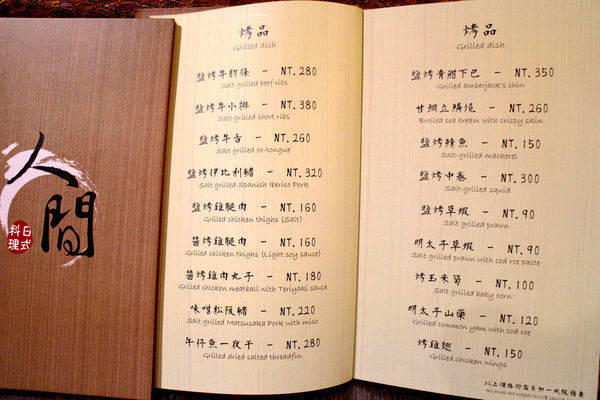 人間
日式
料理
烤品
Grilled dish
鹽烤牛肋條 - NT. 280
Salt grilled beef ribs
鹽烤牛小排 - NT. 380
Salt grilled short ribs
鹽烤牛舌 - NT. 260
Salt grilled ox-tongue
鹽烤伊比利豬 - NT. 320
Salt grilled Spanish Iberico Pork
鹽烤雞腿肉 - NT. 160
Grilled chicken thighs (Salt)
醬烤雞腿肉 - NT. 160
Grilled chicken thighs (Light soy sauce)
醬烤雞肉丸子 - NT. 180
Grilled chicken meatball with Teriyaki sauce
味噌松阪豬 - NT. 220
Salt grilled Matsusaka Pork with miso
午仔魚一夜干 - NT. 280
Grilled dried salted threadfin
烤品
Grilled dish
鹽烤青甘下巴 - NT. 350
Grilled amberjack's chin
甘鯛立鱗燒 - NT. 260
Broiled sea bream with crispy skin
鹽烤鯖魚 - NT. 150
Salt-grilled mackerel
鹽烤中卷 - NT. 300
Salt-grilled squid
鹽烤草蝦 - NT. 90
Salt grilled prawn
明太子草蝦 - NT. 90
Salt grilled prawn with cod roe paste
烤玉米筍 - NT. 100
Salt grilled baby corn
明太子山藥 - NT. 120
Grilled common yam with cod roe
烤雞翅 - NT. 150
Grilled chicken wings
以上價格均需另加一成服務費
All prices are subject to 10% service